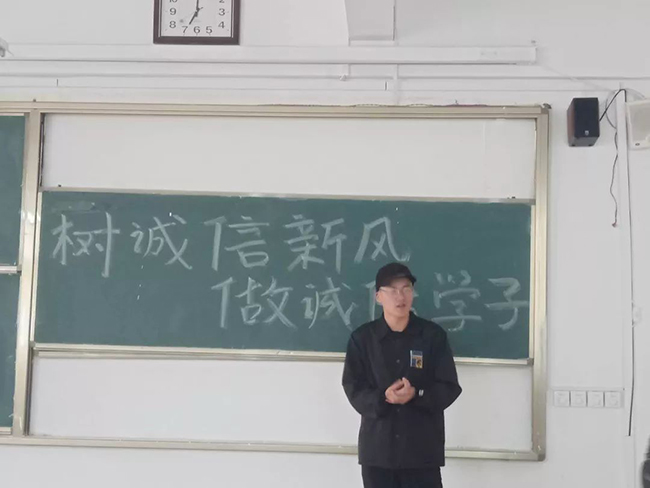 9 3
8 4
7 6 5
树诚信新风
做诚学子